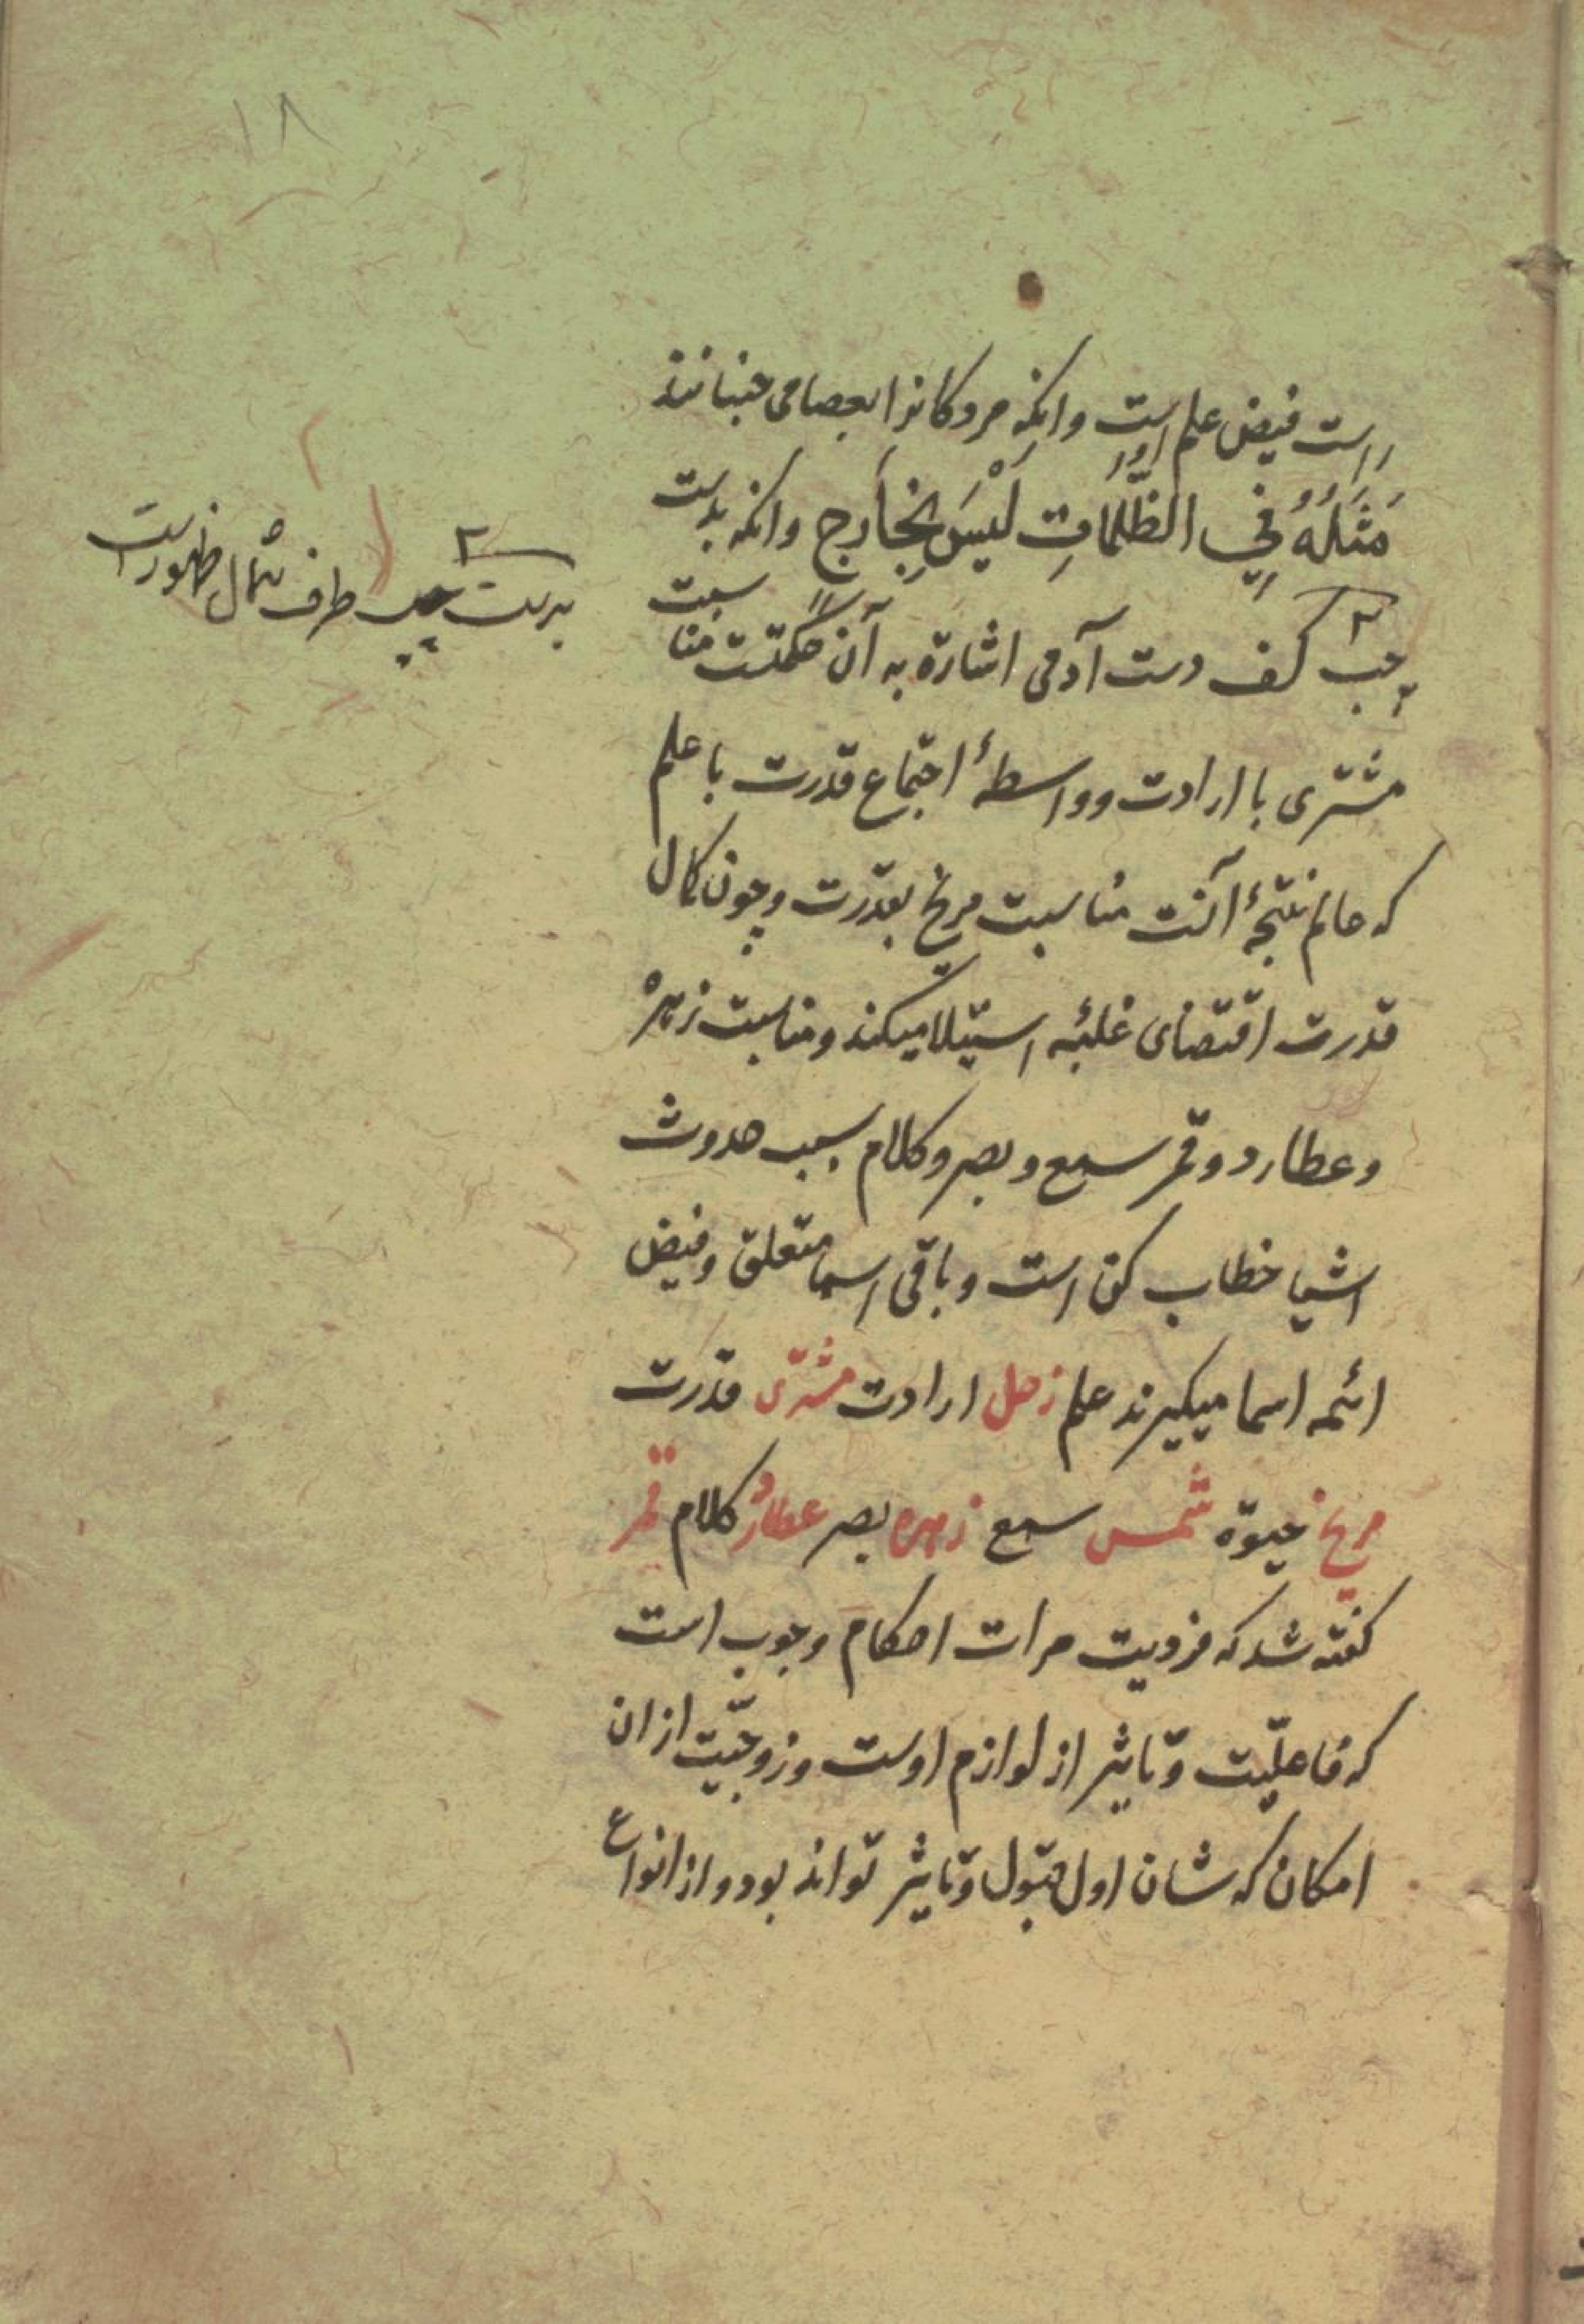 ۱۸
راست فیض علم اوست وانکه مردکانرا بعصا می جنبانند
مَثَلُهُ فِي الظُّلُمَاتِ لَيْسَ بِخَارِجٍ وانکه بدست
چپ کف دست آدمی اشارة به آن حکمتست مناسبت
مشتری با ارادت وواسطهٔ اجتماع قدرت با علم
که عالم نتیجهٔ آنست مناسبت مریخ بقدرت وچون کمال
قدرت اقتضای غلبهٔ استیلا میکند ومناسبت زهره
وعطارد وقمر سمع وبصر وکلام سبب حدوث
اشیا خطاب کن است وباقی اسما متعلق وفیض
ائمه اسما میکیرند علم زحل ارادت مشتری قدرت
مریخ حیوة شمس سمع زهره بصر عطارد کلام قمر
کفته شد که فردیت مرات احکام وجوب است
که فاعلیّت وتاثیر از لوازم اوست وزوجیّت ازان
امکان که شان اول قبول وتاثیر تواند بود واز انواع
بدست چپ طرف شمال ظهورست